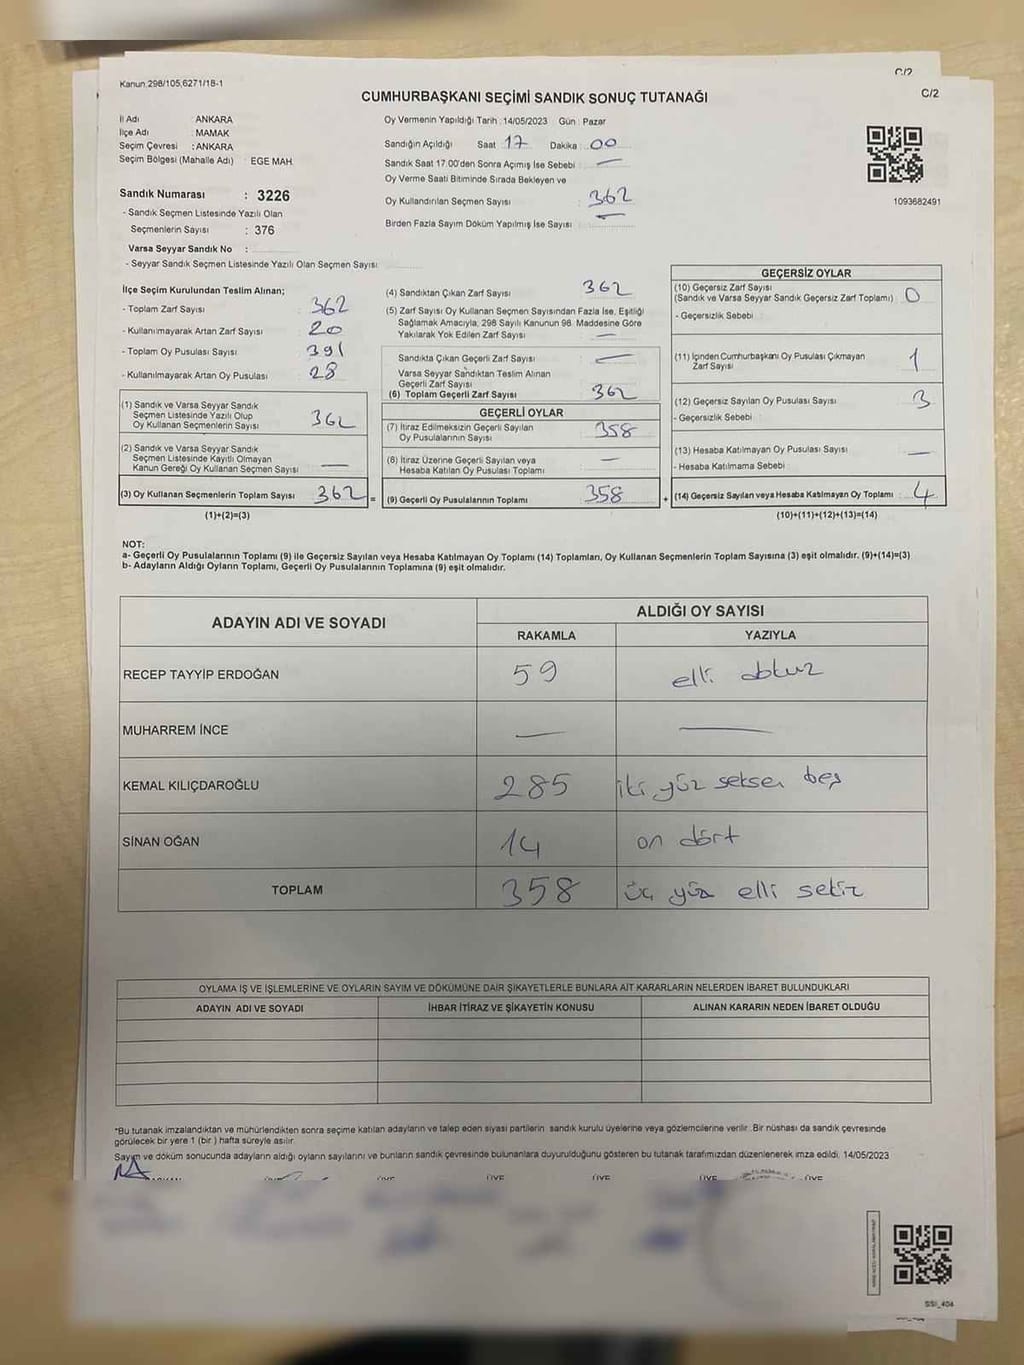 C/2
Kanun 298/105,6271/18-1
C/2
CUMHURBAŞKANI SEÇİMİ SANDIK SONUÇ TUTANAĞI
İl Adı : ANKARA
İlçe Adı : MAMAK
Seçim Çevresi : ANKARA
Seçim Bölgesi (Mahalle Adı) EGE MAH.
Sandık Numarası : 3226
- Sandık Seçmen Listesinde Yazılı Olan
Seçmenlerin Sayısı : 376
Varsa Seyyar Sandık No :
- Seyyar Sandık Seçmen Listesinde Yazılı Olan Seçmen Sayısı:
Oy Vermenin Yapıldığı Tarih : 14/05/2023 Gün : Pazar
Sandığın Açıldığı Saat 17 Dakika 00
Sandık Saat 17.00'den Sonra Açımış İse Sebebi —
Oy Verme Saati Bitiminde Sırada Bekleyen ve
Oy Kullandırılan Seçmen Sayısı : 362
Birden Fazla Sayım Döküm Yapılmış İse Sayısı : —
1093682491
İlçe Seçim Kurulundan Teslim Alınan;
- Toplam Zarf Sayısı : 362
- Kullanılmayarak Artan Zarf Sayısı : 20
- Toplam Oy Pusulası Sayısı : 391
- Kullanılmayarak Artan Oy Pusulası : 28
(1) Sandık ve Varsa Seyyar Sandık
Seçmen Listesinde Yazılı Olup
Oy Kullanan Seçmenlerin Sayısı 362
(2) Sandık ve Varsa Seyyar Sandık
Seçmen Listesinde Kayıtlı Olmayan
Kanun Gereği Oy Kullanan Seçmen Sayısı —
(3) Oy Kullanan Seçmenlerin Toplam Sayısı 362 =
(1)+(2)=(3)
(4) Sandıktan Çıkan Zarf Sayısı 362
(5) Zarf Sayısı Oy Kullanan Seçmen Sayısından Fazla İse, Eşitliği
Sağlamak Amacıyla, 298 Sayılı Kanunun 98. Maddesine Göre
Yakılarak Yok Edilen Zarf Sayısı —
Sandıkta Çıkan Geçerli Zarf Sayısı —
Varsa Seyyar Sandıktan Teslim Alınan
Geçerli Zarf Sayısı
(6) Toplam Geçerli Zarf Sayısı 362
GEÇERLİ OYLAR
(7) İtiraz Edilmeksizin Geçerli Sayılan
Oy Pusulalarının Sayısı 358
(8) İtiraz Üzerine Geçerli Sayılan veya
Hesaba Katılan Oy Pusulası Toplamı —
(9) Geçerli Oy Pusulalarının Toplamı 358 +
GEÇERSİZ OYLAR
(10) Geçersiz Zarf Sayısı
(Sandık ve Varsa Seyyar Sandık Geçersiz Zarf Toplamı) 0
- Geçersizlik Sebebi :
(11) İçinden Cumhurbaşkanı Oy Pusulası Çıkmayan
Zarf Sayısı 1
(12) Geçersiz Sayılan Oy Pusulası Sayısı 3
- Geçersizlik Sebebi :
(13) Hesaba Katılmayan Oy Pusulası Sayısı —
- Hesaba Katılmama Sebebi :
(14) Geçersiz Sayılan veya Hesaba Katılmayan Oy Toplamı 4
(10)+(11)+(12)+(13)=(14)
NOT:
a- Geçerli Oy Pusulalarının Toplamı (9) ile Geçersiz Sayılan veya Hesaba Katılmayan Oy Toplamı (14) Toplamları, Oy Kullanan Seçmenlerin Toplam Sayısına (3) eşit olmalıdır. (9)+(14)=(3)
b- Adayların Aldığı Oyların Toplamı, Geçerli Oy Pusulalarının Toplamına (9) eşit olmalıdır.
ADAYIN ADI VE SOYADI ALDIĞI OY SAYISI
RAKAMLA YAZIYLA
RECEP TAYYİP ERDOĞAN 59 elli dokuz
MUHARREM İNCE — —
KEMAL KILIÇDAROĞLU 285 iki yüz seksen beş
SİNAN OĞAN 14 on dört
TOPLAM 358 üç yüz elli sekiz
OYLAMA İŞ VE İŞLEMLERİNE VE OYLARIN SAYIM VE DÖKÜMÜNE DAİR ŞİKAYETLERLE BUNLARA AİT KARARLARIN NELERDEN İBARET BULUNDUKLARI
ADAYIN ADI VE SOYADI İHBAR İTİRAZ VE ŞİKAYETİN KONUSU ALINAN KARARIN NEDEN İBARET OLDUĞU
*Bu tutanak imzalandıktan ve mühürlendikten sonra seçime katılan adayların ve talep eden siyasi partilerin sandık kurulu üyelerine veya gözlemcilerine verilir. Bir nüshası da sandık çevresinde
görülecek bir yere 1 (bir) hafta süreyle asılır.
Sayım ve döküm sonucunda adayların aldığı oyların sayılarını ve bunların sandık çevresinde bulunanlara duyurulduğunu gösteren bu tutanak tarafımızdan düzenlenerek imza edildi. 14/05/2023
ÜYE ÜYE ÜYE ÜYE
SSI_404